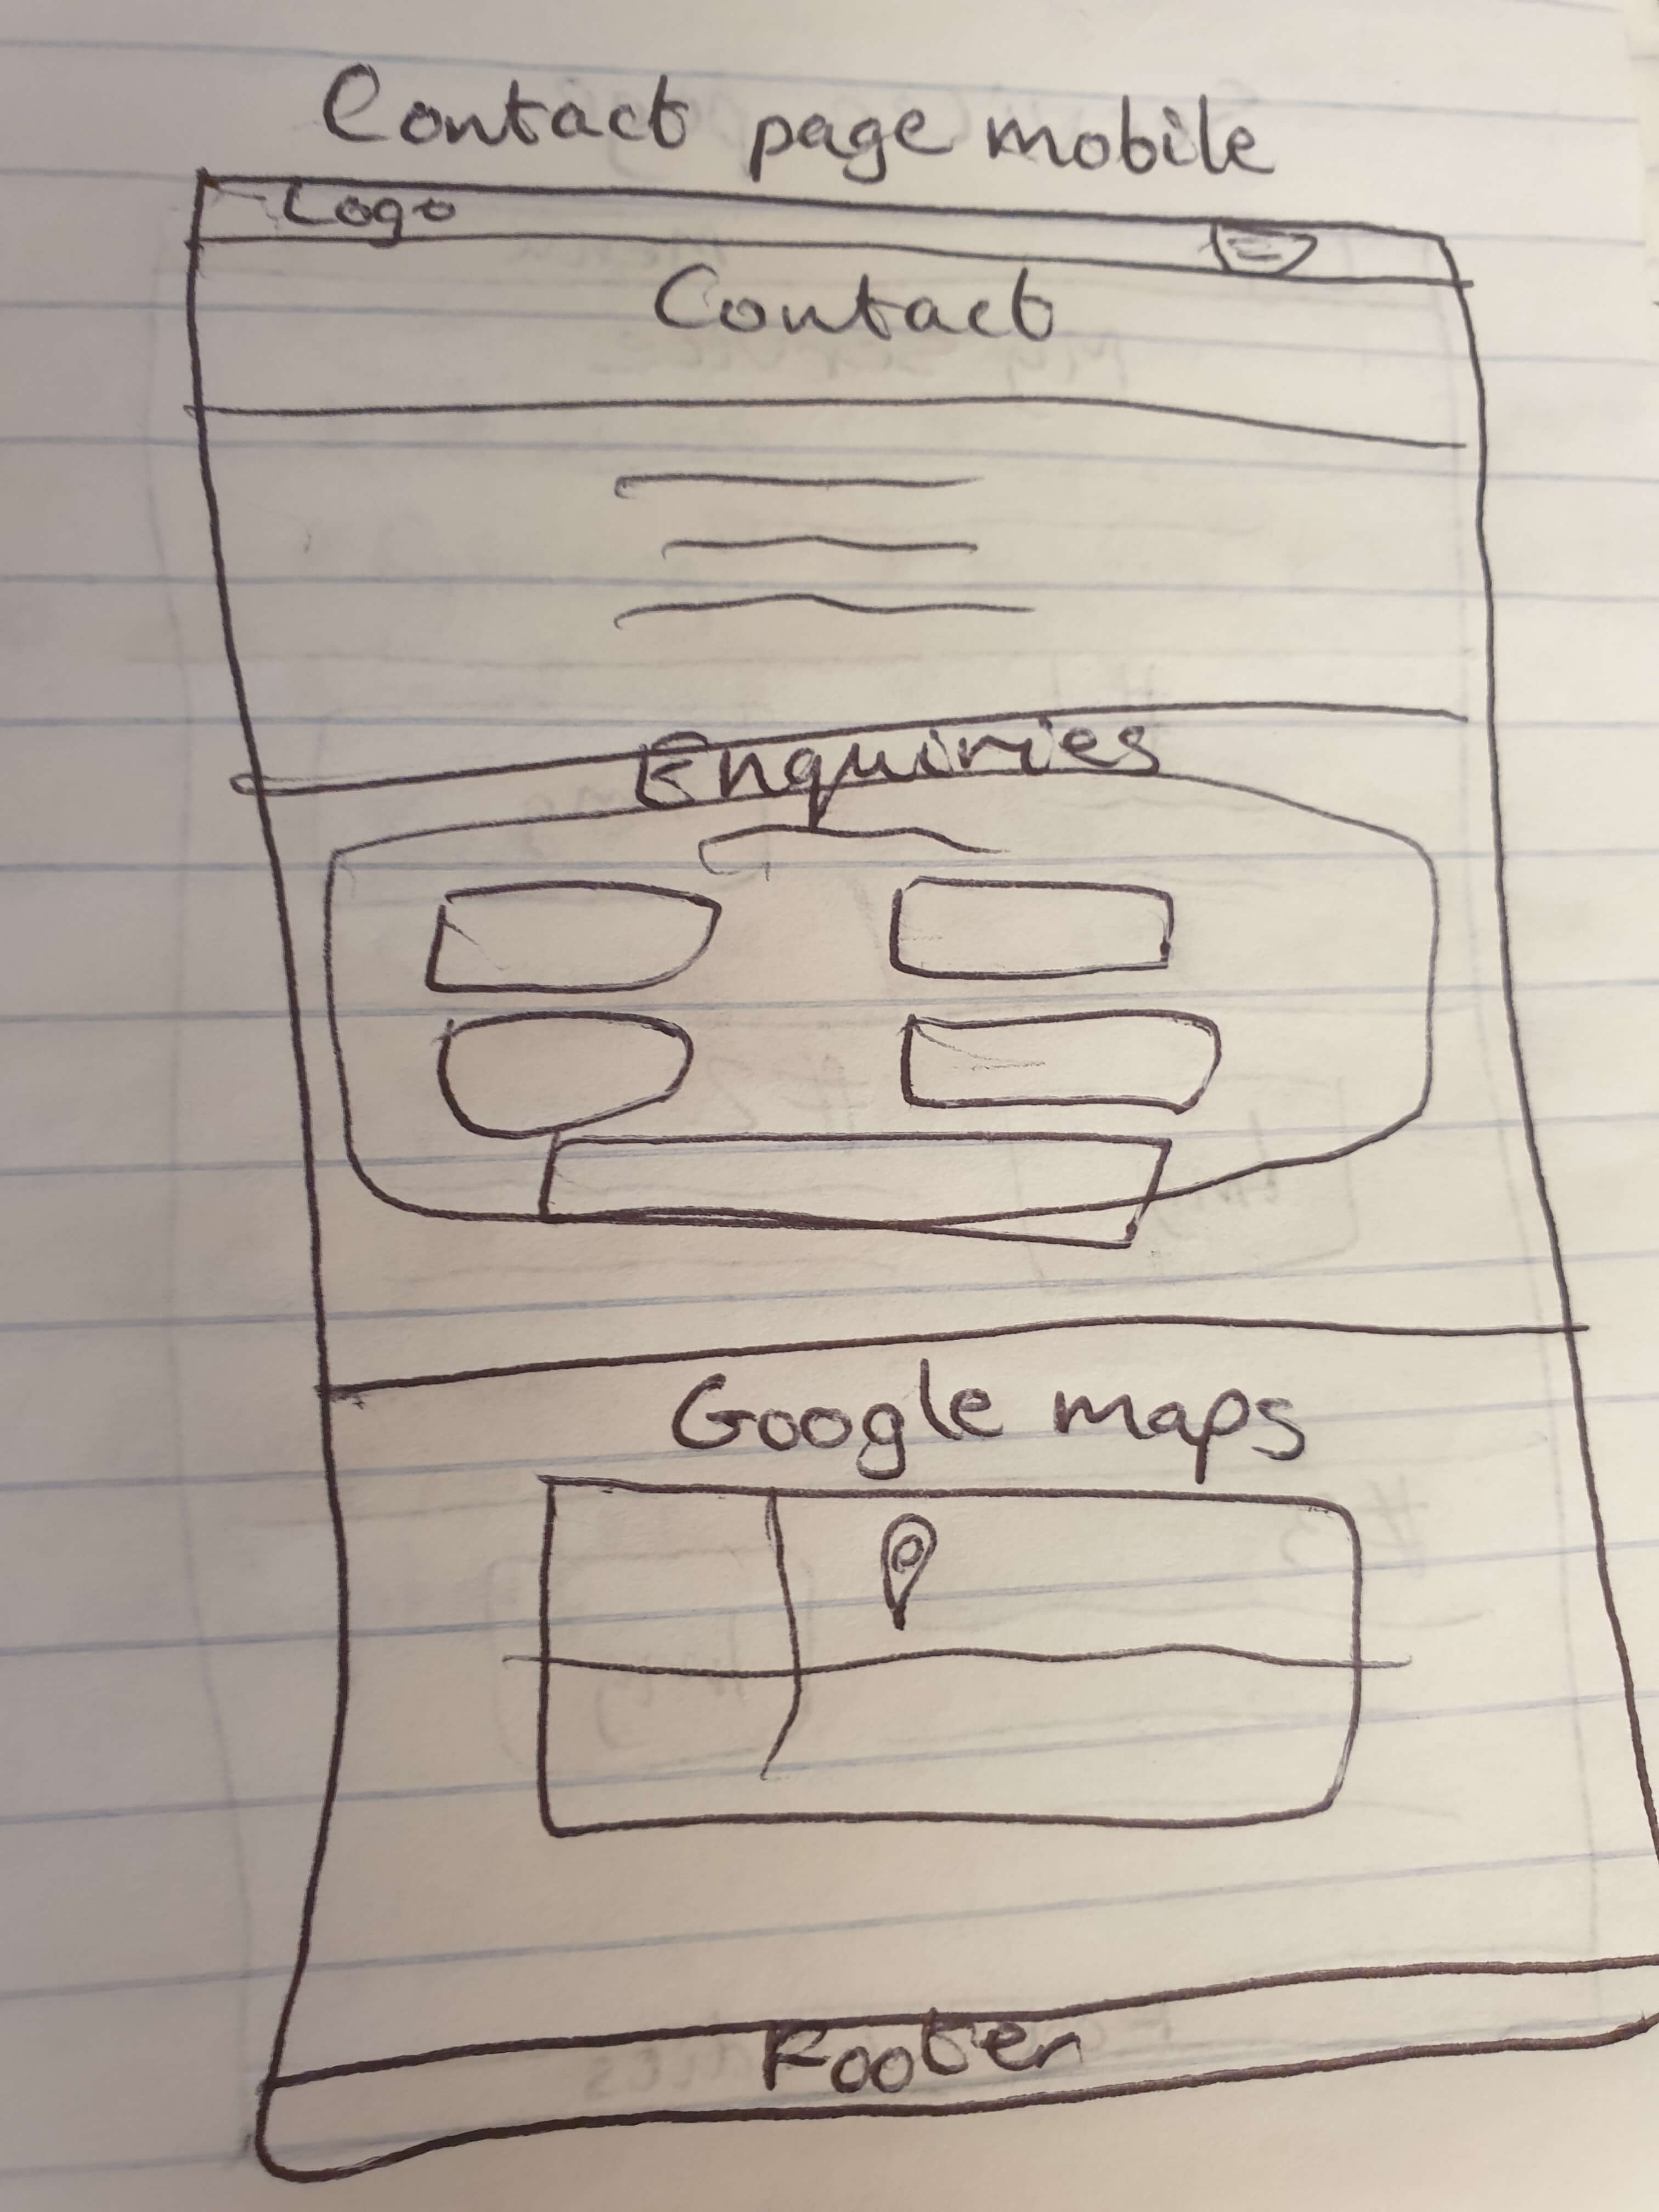 Contact page mobile
Logo
Contact
Enquiries
Google maps
Footer